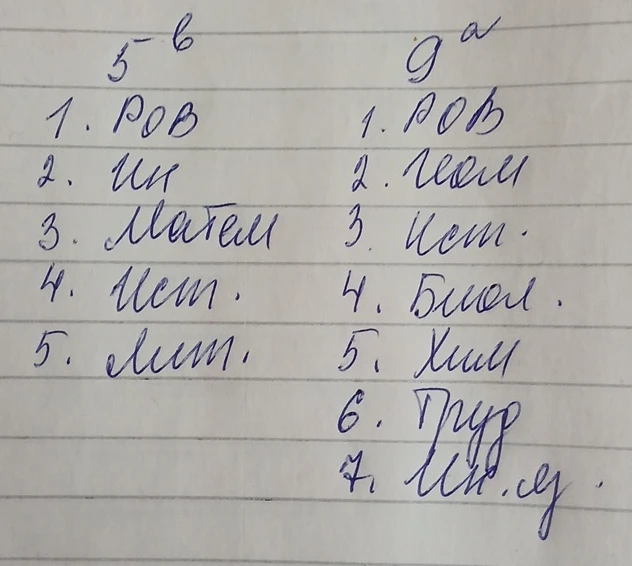 5 в
1. РОВ
2. Ин
3. Матем
4. Ист.
5. Лит.
9 а
1. РОВ
2. Геом
3. Ист.
4. Биол.
5. Хим
6. Труд
7. Ин. яз.